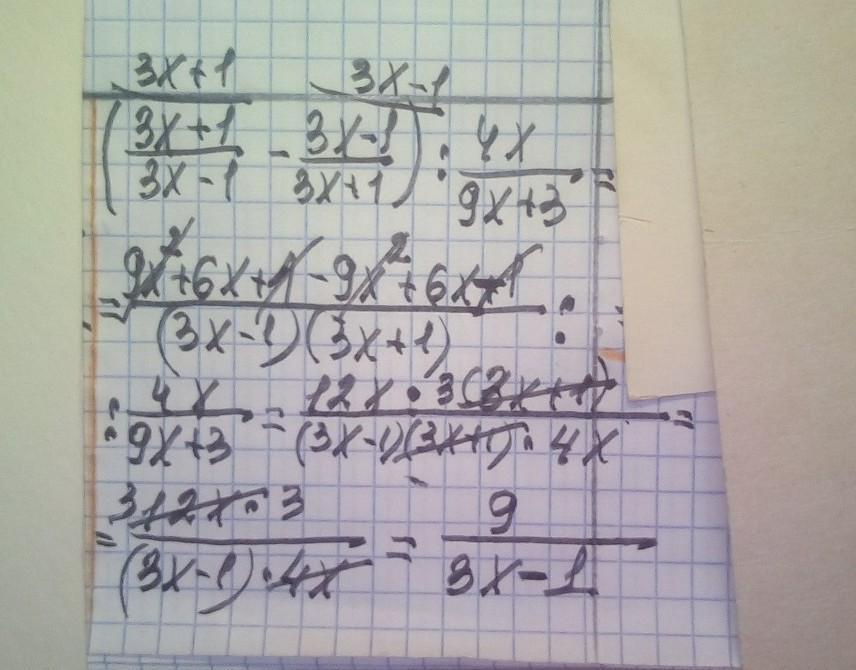 3x+1 3x-1
(3x+1/3x-1 - 3x-1/3x+1) : 4x/9x+3 =
= 9x²+6x+1-9x²+6x-1/(3x-1)(3x+1) :
: 4x/9x+3 = 12x·3(3x+1)/(3x-1)(3x+1)·4x =
= 3 12x·3/(3x-1)·4x = 9/3x-1